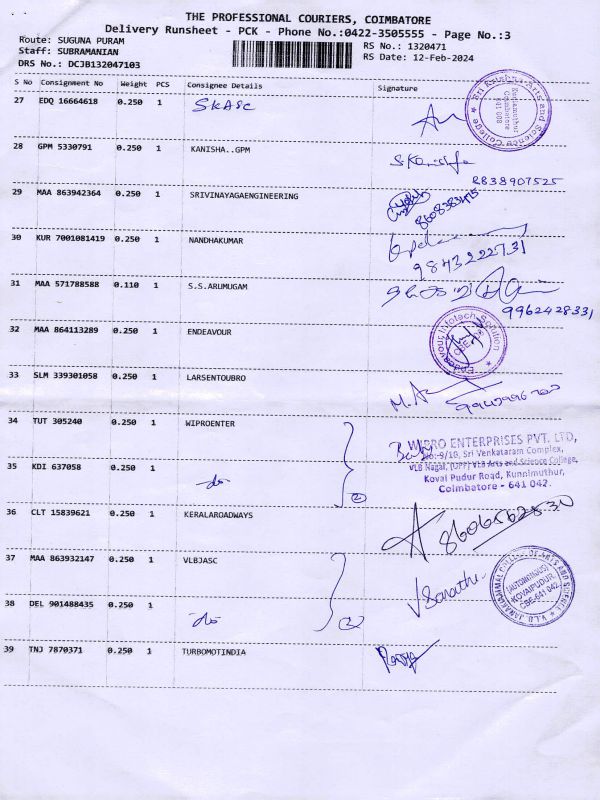 THE PROFESSIONAL COURIERS, COIMBATORE
Delivery Runsheet - PCK - Phone No.:0422-3505555 - Page No.:3
Route: SUGUNA PURAM
Staff: SUBRAMANIAN
DRS No.: DCJB132047103
RS No.: 1320471
RS Date: 12-Feb-2024
S No Consignment No Weight PCS Consignee Details Signature
27 EDQ 16664618 0.250 1 SKASC
Sri Krishna Arts and Science College
Kuniamuthur
Coimbatore
641 008
28 GPM 5330791 0.250 1 KANISHA..GPM
8838907525
29 MAA 863942364 0.250 1 SRIVINAYAGAENGINEERING
30 KUR 7001081419 0.250 1 NANDHAKUMAR
9843222731
31 MAA 571788588 0.110 1 S.S.ARUMUGAM
9962428331
32 MAA 864113289 0.250 1 ENDEAVOUR
Endeavour Infotech Solution
33 SLM 339301058 0.250 1 LARSENTOUBRO
34 TUT 305240 0.250 1 WIPROENTER
WIPRO ENTERPRISES PVT. LTD,
No:-9/10, Sri Venkataram Complex,
VLB Nagar, (OPP) VLB Arts and Science College,
Kovai Pudur Road, Kunnimuthur,
Coimbatore - 641 042.
35 KDI 637058 0.250 1 -do-
2
36 CLT 15839621 0.250 1 KERALAROADWAYS
37 MAA 863932147 0.250 1 VLBJASC
V.L.B. JANAKIAMMAL COLLEGE OF ARTS AND SCIENCE
(AUTONOMOUS)
KOVAIPUDUR
CBE-641 042
38 DEL 901488435 0.250 1 -do-
2
39 TNJ 7870371 0.250 1 TURBOMOTINDIA